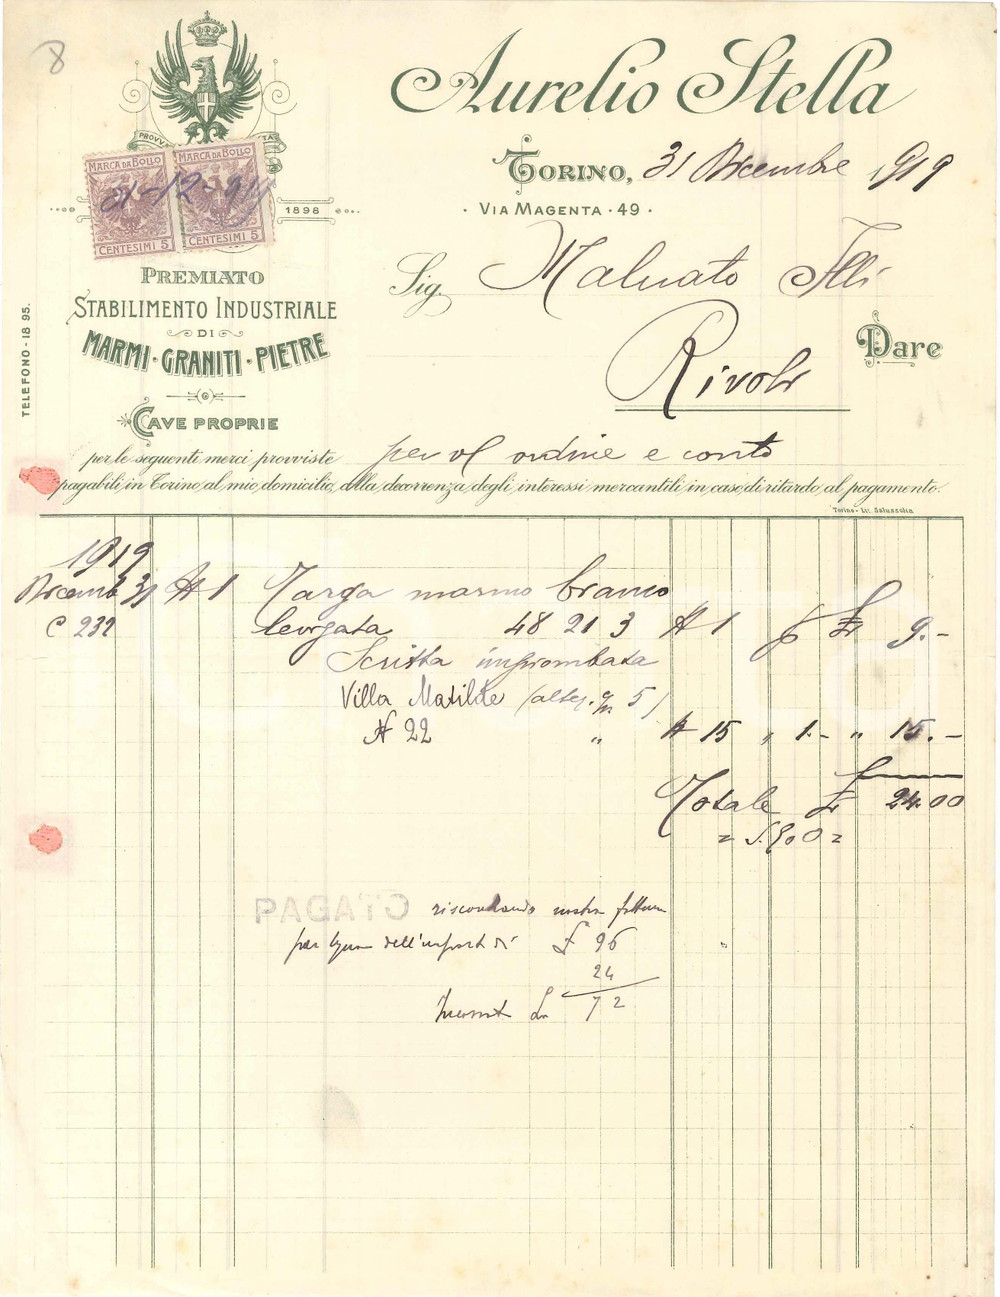 8
Aurelio Stella
Torino, 31 Dicembre 1919
Via Magenta · 49 ·
MARCA DA BOLLO MARCA DA BOLLO
31-12-919
CENTESIMI 5 CENTESIMI 5
1898
Premiato
Stabilimento Industriale
di
Marmi · Graniti · Pietre
Cave proprie
Telefono - 18 95.
Sig. Malvato Flli
Rivoli
Dare
per le seguenti merci provviste per vs ordine e conto
pagabili in Torino al mio domicilio, alla decorrenza degli interessi mercantili in caso di ritardo al pagamento.
Torino - Lit. Salussolia
1919
Dicemb 31 N 1 Targa marmo bianco
C 232 levigata 48 21 3 N 1 £ 9.-
Scritta impiombata
Villa Matilde (altez. c/m 5)
N 22 " N 15 " 1.- " 15.-
Totale £ 24.00
PAGATO riscontrando nostra fattura
per dell'importo di £ 96
24
72